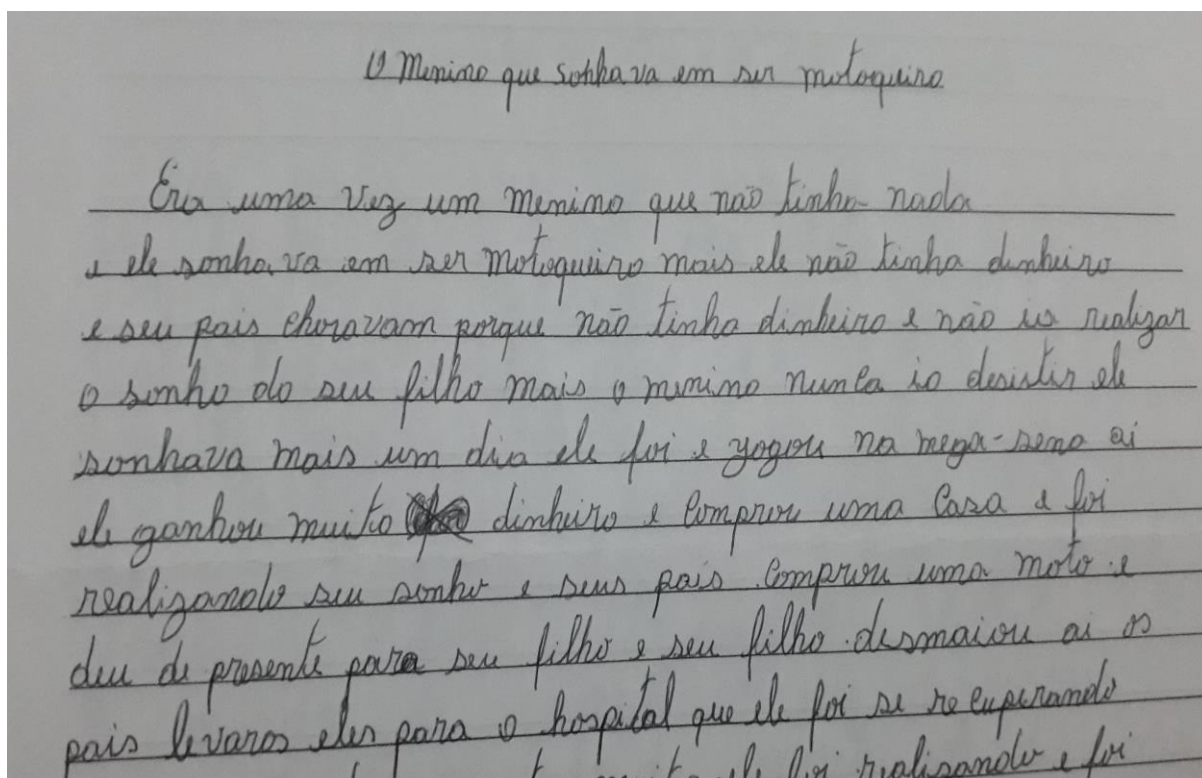 O Menino que sonhava em ser motoqueiro
Era uma vez um menino que não tinha nada
e ele sonhava em ser motoqueiro mais ele não tinha dinheiro
e seu pais choravam porque não tinha dinheiro e não ia realizar
o sonho do seu filho mais o menino nunca ia desistir ele
sonhava mais um dia ele foi e yogou na mega-sena ai
ele ganhou muito dinheiro e comprou uma casa e foi
realizando seu sonho e seus pais comprou uma moto e
deu de presente para seu filho e seu filho desmaiou ai os
pais levaros eles para o hospital que ele foi se recuperando
ele foi realizando e foi